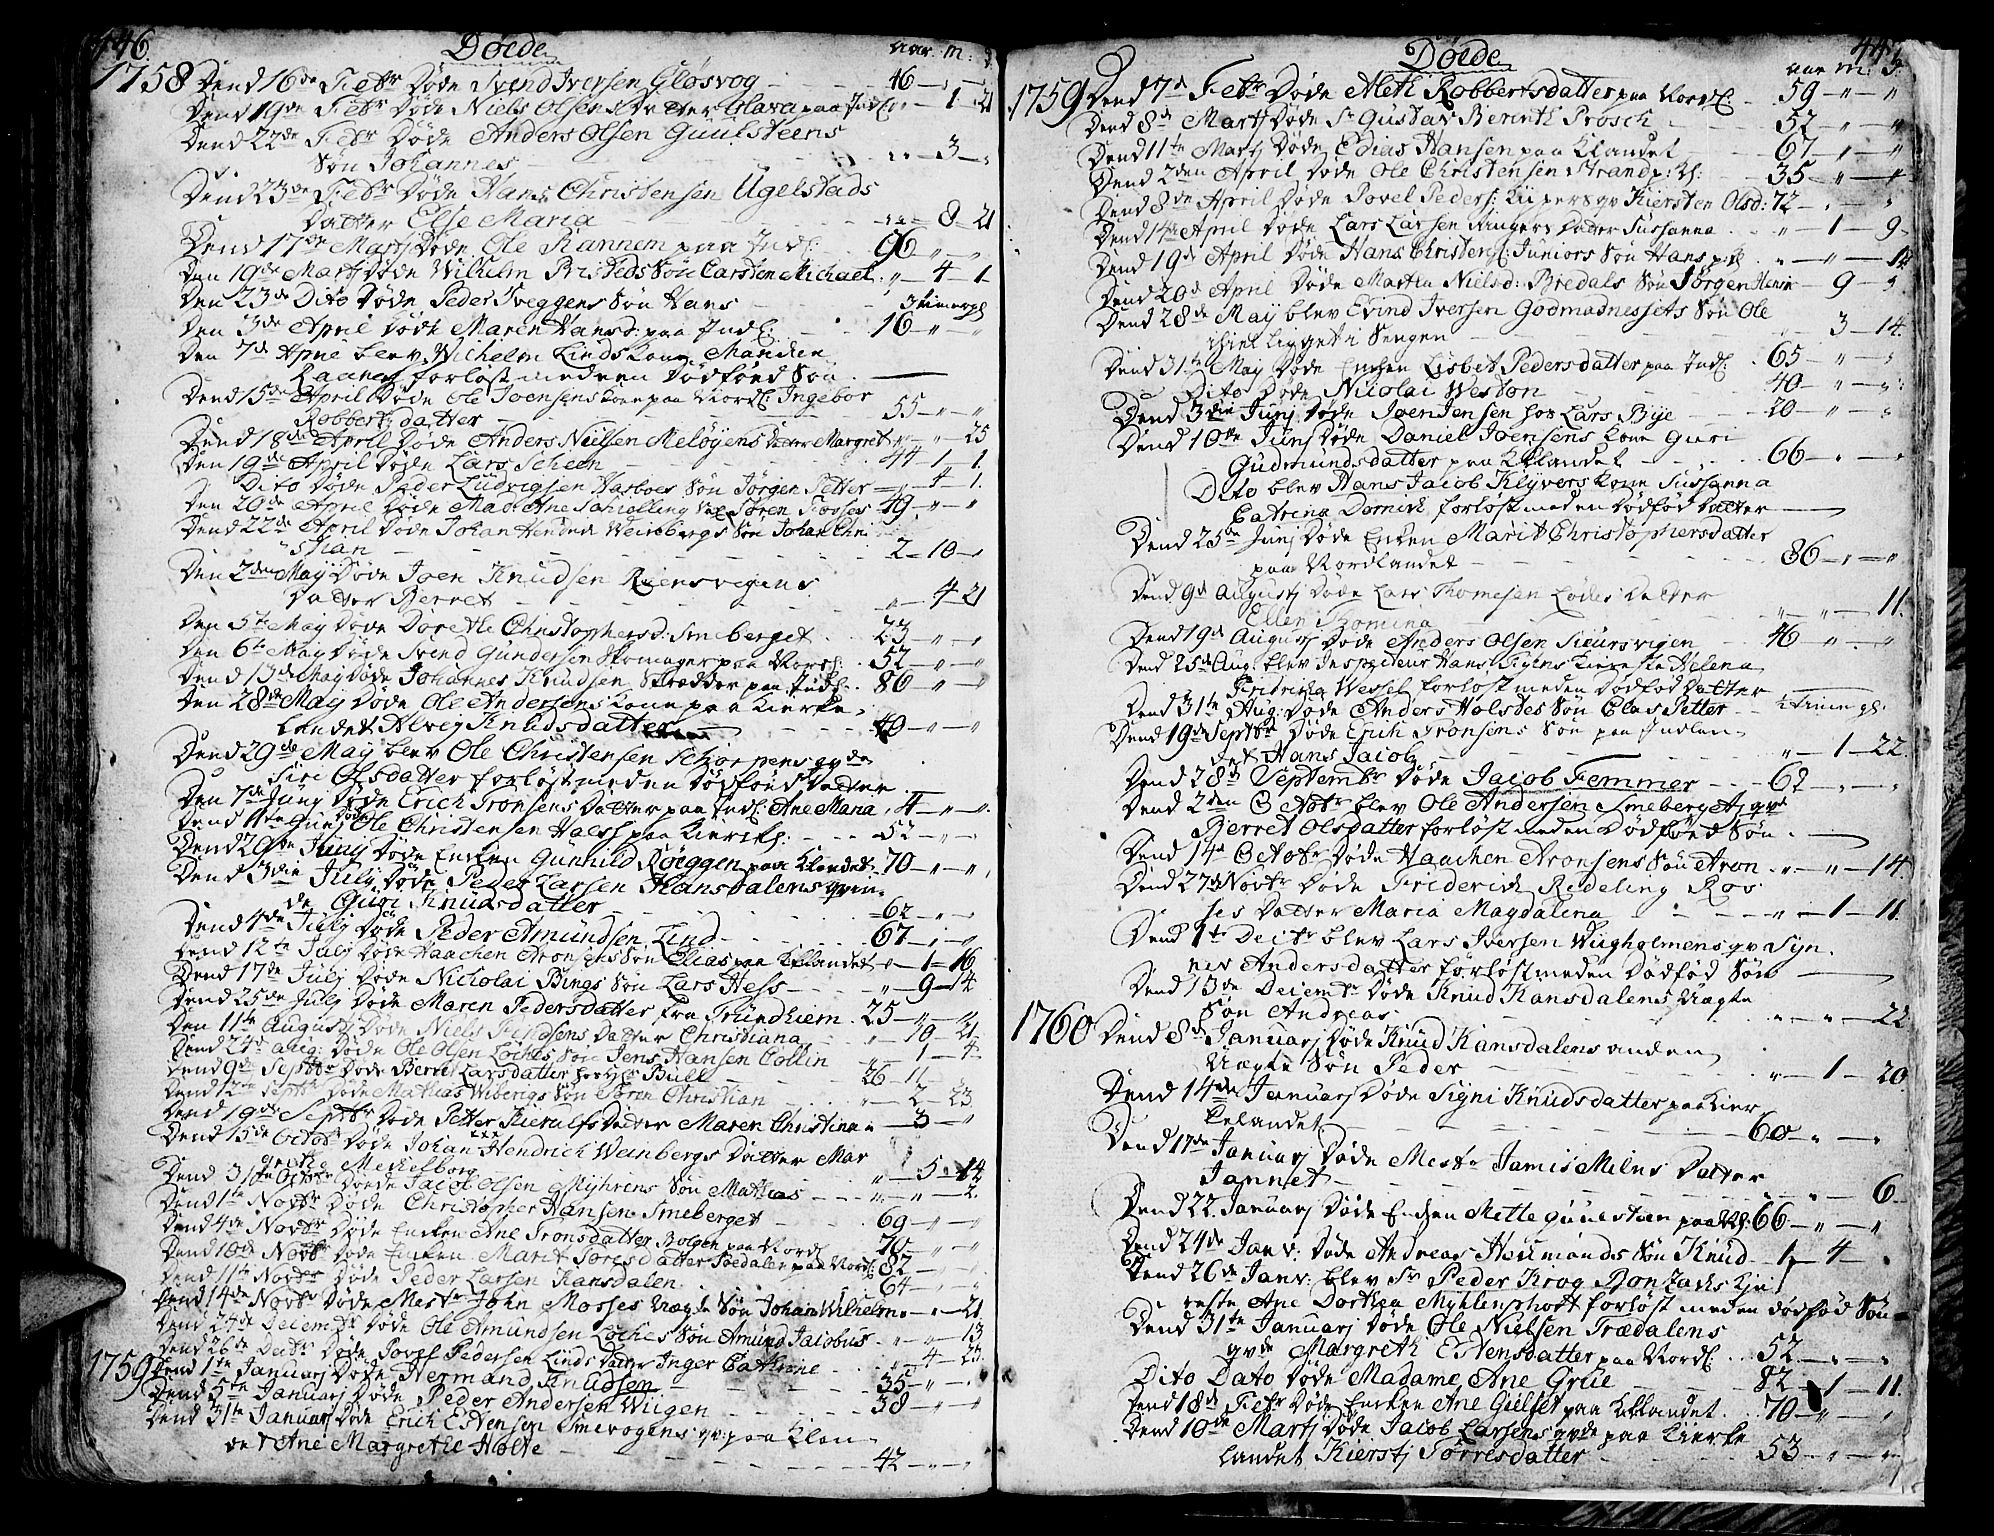 446.
Døede
aar. m: d.
1758 Dend 16de Febr Døde Svend Iversen Gløsvog 46
Dend 19de Febr Døde Niels Olsens Datter Olava paa Indl: 1 21
Dend 22de Febr Døde Anders Olsen Guulsteens
Søn Johannes 3
Dend 23de Febr Døde Hans Christensen Ugelstads
Datter Else Maria 8 21
Dend 17de Martj Døde Ole Kannem paa Indl: 96
Den 19de Martj Døde Wilhelm Bristeds Søn Carsten Michael 4 1
Den 23de Dito Døde Peder Sveggens Søn Hans 3 timer gl
Den 3de April Døde Maren Hansd: paa Indl: 16
Den 7de April blev Wilhelm Linds Kone Maren
forløst med een Dødføed Søn
Dend 15de April Døde Ole Joensens Kone paa Nordl: Ingebor
Robbertsdatter 55
Dend 18de April Døde Anders Nielsen Meløyens Datter Margret 25
Den 19de April Døde Lars Scheen 44 1 1
Dito Døde Peder Ludvigsen Hasboes Søn Jørgen Petter 4 1
Den 20de April Døde Mad. Ane Schiolling Søren Fosses 49
Dend 22de April Døde Johan Hendrik Weinbergs Søn Johan Chri
stian 2 10
Den 2den May Døde Joen Knudsen Reensvigens
Datter Berret 4 21
Den 5te May Døde Dorethe Christophersd: Smeberget 23
Den 6te May Døde Svend Gundersen Skomager paa Nordl: 52
Dend 13de May Døde Johannes Knudsen Skrædder paa Indl: 86
Den 28de May Døde Ole Andersens Kone paa Kierke
Landet Alvey Knudsdatter 40
Dend 29de May blev Ole Christensen Schorpens qvde
Siri Olsdatter forløst med en Dødføed Datter
Den 7de Junj Døde Erich Tronsens Datter paa Indl: Ane Maria 4
Dend 11te Junj Døde Ole Christensen Halss paa Kierkl: 52
Dend 29de Junij Døde Encken Gunhild Røeggen paa Klandet 70
Dend 3die Julij Døde Peder Larsen Kansdalens qvin
de Guri Knudsdatter 62
Dend 4de Julij Døde Peder Amundsen Lind 67
Dend 12te July Døde Haachen Aronsens Søn Elias paa Kllandet 1 16
Dend 17de Julj Døde Nicholai Bings Søn Lars Hess 9 14
Dend 25de Julj Døde Maren Pedersdatter fra Trundhiem 25
Den 11te Augustj Døde Niels Datter Christiana 10 21
Dend 24de Aug: Døde Ole Olsen Løches Søn Jens Hansen Collin 1 4
Dend 9de Septbr Døde Berret Larsdatter hos Hr Bull 26 11
Dend 12te Septbr Døde Mathias Wibergs Søn Søren Christian 2 23
Dend 19de Septbr Døde Petter Kierulfs Datter Maren Christina 3
Dend 15de Octobr Døde Johan Hendrich Weinbergs Datter Mar
grethe Mechelborg 5 14
Dend 31te Octobr Døede Jacob Olsen Myhrens Søn Mathias 2
Dend 1te Novbr Døde Christopher Hansen Smeberget 69
Dend 4de Novbr Døde Encken Ane Tronsdatter Bolgen paa Nordl
Dend 10de Novbr Døde Encken Marit Toresdatter Søedaler paa Nordl: 82
Dend 11te Novbr Døde Peder Larsen Kansdalen 64
Dend 14de Novbr Døde Mestr John Mosses Uægte Søn Johan Wilhelm 21
Dend 24de Decembr Døde Ole Amundsen Løches Søn Amund Jacobus 13
Dend 26de Decbr Døde Povel Pedersen Linds Datter Inger Cathrine 4 23
1759 Dend 1te Januarj Døde Hermand Knudsen 35
Dend 5te Januarj Døde Peder Andersen Wiigen 38
Dend 31te Januarj Døde Erich Evensen Smevogens qv: paa Klan
det Ane Margrethe Holte 42
Døede
aar m: d.
1759 Dend 7de Febr Døde Alethe Robbertsdatter paa Nordl: 59
Dend 8de Martj Døde Sr Gustav Berinth Prosch 52
Dend 11te Martj Døde Edias Hansen paa Klandet 67
Dend 2den April Døde Ole Christensen Strand p: Kl: 35
Dend 8de April Døde Povel Peders: Kypers qv Kiersten Olsd: 72
Dend 14de April Døde Lars Larsen Ringers Datter Sussanna 1 9
Dend 19de April Døde Hans Christens: Juniors Søn Hans 14
Dend 20de April Døde Martha Nielsd: Bredals Søn Jørgen 9
Dend 28de May blev Evind Iversen Godmadnessets Søn Ole
ihiel ligget i Sengen 3 14
Dend 31te May Døde Encken Lisbet Pedersdatter paa Indl: 65
Dito Døde Nicolai Weston 40
Dend 3die Junj Døde Joen Jensen hos Lars Bye 20
Dend 10de Junj Døde Daniel Joensens Kone Guri
Gudmundsdatter paa Kllandet 66
Dito blev Hans Jacob Klyvers Kone Sussanna
Catrina Dornich forløst med en Dødføed Datter
Dend 25de Junj Døde Encken Marit Christophersdatter
paa Nordlandet 86
Dend 9de Augustj Døde Lars Thomesen Lødes Datter
Ellen Romina 11
Dend 19de Augustj Døde Anders Olsen Sieursvigen 46
Dend 25de Aug: blev Inspecteur Hans Kiereste Helena
Fridricha Wessel forløst med en Dødfød Datter
Dend 31te Aug: Døde Anders Holstes Søn Clas Petter timer gl.
Dend 19de Septbr Døde Erich Tronsens Søn paa Indlan
det Hans Jacob 1 22
Dend 28de Septembr Døde Jacob Femmer 62
Dend 2den Octobr blev Ole Andersen Smebergets qvde
Berret Olsdatter forløst med en Dødføed Søn
Dend 14de Octobr Døde Haachen Aronsens Søn Aron 14
Dend 27de Novbr Døde Friderich Redeling Ros
ses Datter Maria Magdalena 1 11
Dend 1te Decbr blev Lars Iversen Wugholmens qv Syn
nev Andersdatter forløst med en Dødfød Søn
Dend 13de Decembr Døde Knud Kansdalens Uægte
Søn Andreas 22
1760 Dend 8de Januarj Døde Knud Kansdalens anden
Uægte Søn Peder 1 20
Dend 14de Januarj Døde Signi Knudsdatter paa Kier
kelandet 60
Dend 17de Januarj Døde Mestr Jamis Milns Datter
Jannet 6
Dend 22. Januarj Døde Encken Mette Guulsteen paa Kl: 66
Dend 24de Janv: Døde Andreas Houmands Søn Knud 1 4
Dend 26de Janv: blev Sr Peder Krog Bonsachs Kje
reste Ane Dorthea Myhlenphort forløst med en dødfød Søn
Dend 31te Januarj Døde Ole Nielsen Trædalens
qvde Margreth Evensdatter paa Nordl: 52
Dito Dato Døde Madame Ane Grue 82 1 11
Dend 18de Febr Døde Encken Ane Gielset paa Kllandet 70
Dend 10de Martj Døde Jacob Larsens qvde paa Kierke
landet Kierstj Torresdatter 53